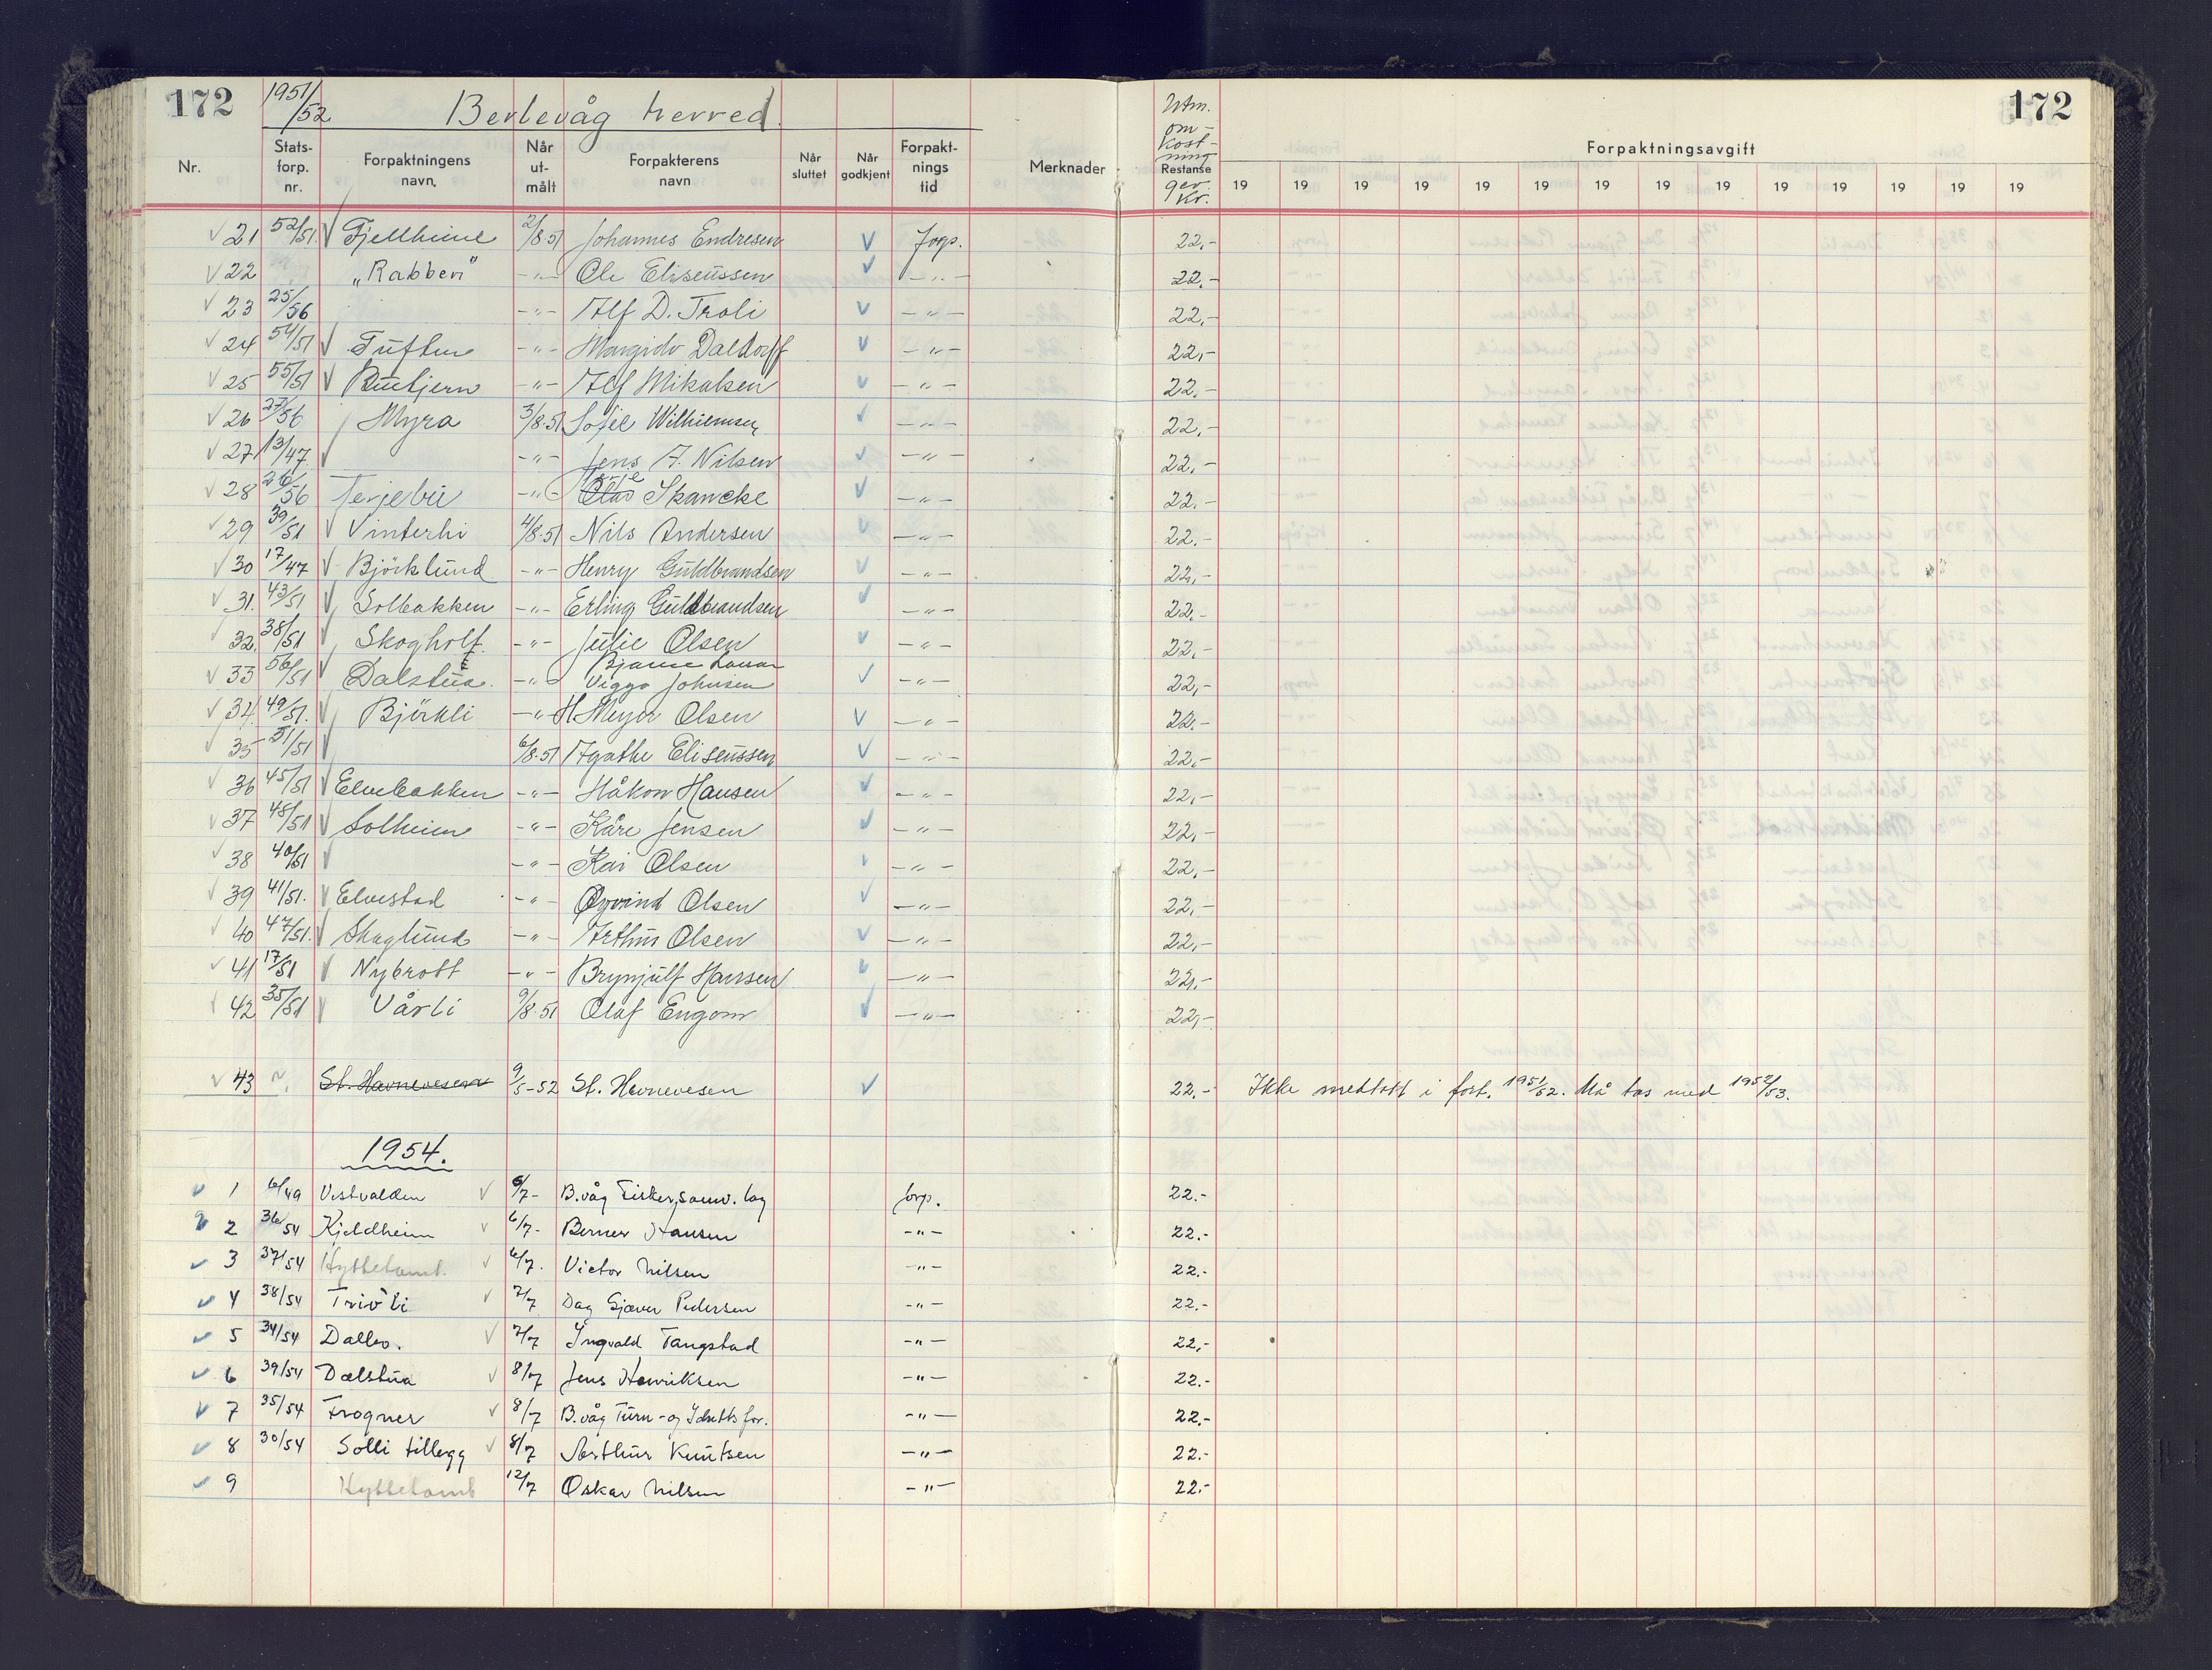 172 1951/52 Berlevåg herred. 172
Utm. om- kost- ning
Forpaktningsavgift
Nr. Stats- forp. nr. Forpaktningens navn. Når ut- målt Forpakterens navn Når sluttet Når godkjent Forpakt- nings tid Merknader Restanse 19 19 19 19 19 19 19 19 19 19 19 19 19 19
Kr.
√ 21 52/51. √ Fjellheim 2/8.51 Johannes Endresen √ Forp. 22,-
√ 22 „Rabben" -"- Ole Eliseussen √ -"- 22,-
√ 23 25/56 -"- Alf D. Troli √ -"- 22,-
√ 24 54/51 √ Tuften -"- Margido Daldorff √ -"- 22,-
√ 25 55/51 √ -"- Alf Mikalsen √ -"- 22,-
√ 26 27/56 Myra 3/8.51 Sofie Wilhelmsen √ -"- 22,-
√ 27 13/47 √ -"- Jens A. Nilsen √ -"- 22,-
√ 28 26/56 Terjebu -"- Olav Skancke √ -"- 22,-
√ 29 39/51 √ Vinterhi 4/8.51 Nils Andersen √ -"- 22,-
√ 30 17/47 √ Björklund -"- Henry Guldbrandsen √ -"- 22,-
√ 31. 43/51 √ Solbakken -"- Erling Guldbrandsen √ -"- 22,-
√ 32. 38/51 √ Skogholt. -"- Julie Olsen √ -"- 22,-
Bjarne Larsen
√ 33 56/51 √ Dalstua. -"- Viggo Johnsen √ -"- 22,-
√ 34. 49/51. √ Björkli -"- H Meyer Olsen √ -"- 22,-
√ 35 51/51 √ 6/8.51 Agathe Eliseussen √ -"- 22,-
√ 36 45/51 √ Elvebakken -"- Håkon Hansen √ -"- 22,-
√ 37 48/51 √ Solheim -"- Kåre Jensen √ -"- 22,-
√ 38 40/51 √ -"- Kai Olsen √ -"- 22,-
√ 39 41/51. √ Elvestad -"- Øyvind Olsen √ -"- 22,-
√ 40 47/51. √ Skoglund -"- Arthur Olsen √ -"- 22,-
√ 41 17/51 √ Nybrott -"- Brynjulf Hanssen √ -"- 22,-
√ 42 35/51 √ Vårli 9/8.51 Olaf Engom √ -"- 22,-
√ 43 St. Havnevesen 9/5-52 St. Havnevesen √ 22.- Ikke medtatt i fort. 1951/52. Må tas med 1952/53.
1954.
√ 1 6/49 Vestvolden √ 6/7- B.våg Fisker,samv. lag forp. 22.-
√ 2 36/54 Kjeldheim √ 6/7- Berner Hansen -"- 22.-
√ 3 37/54 Hyttetomt. √ 6/7. Victor Nilsen -"- 22.-
√ 4 38/54 Trivli √ 7/7 Dag Gjæver Pedersen -"- 22.-
√ 5 34/54 Dalbo. √ 7/7 Ingvald Tangstad -"- 22,-
√ 6 39/54 Dalstua √ 8/7 Jens Henriksen -"- 22.-
√ 7 35/54 Frogner √ 8/7 B.våg Turn- og Idrettsfor. -"- 22.-
√ 8 30/54 Solli tillegg √ 8/7 Arthur Knutsen -"- 22.-
√ 9 Hyttetomt 12/7 Oskar Nilsen -"- 22.-